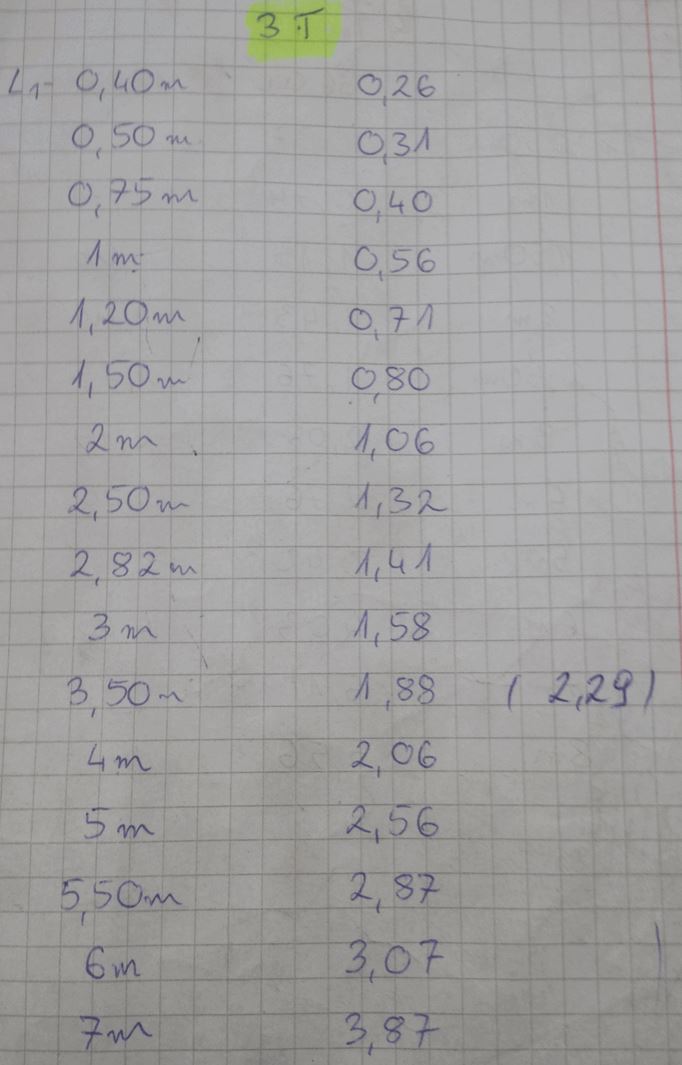 3 T
L1- 0,40m 0,26
0,50m 0,31
0,75m 0,40
1m 0,56
1,20m 0,71
1,50m 0,80
2m 1,06
2,50m 1,32
2,82m 1,41
3m 1,58
3,50m 1,88 ( 2,29)
4m 2,06
5m 2,56
5,50m 2,87
6m 3,07
7m 3,87